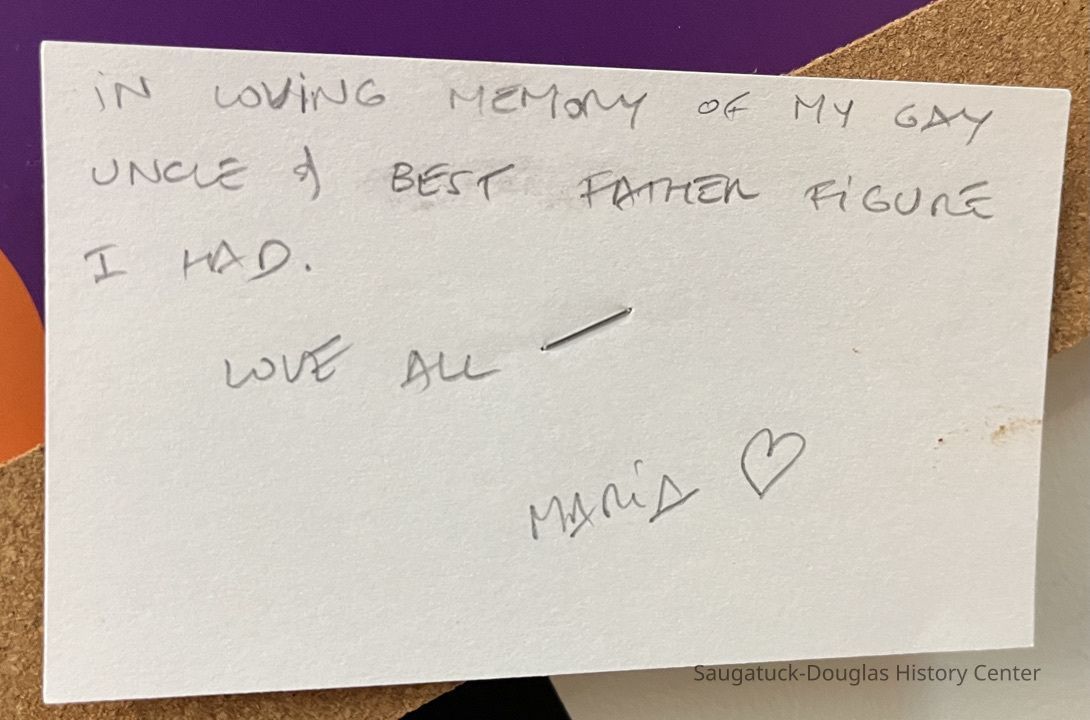 iN LOViNG MEMORY OF MY GAY
UNCLE & BEST FATHER FiGURE
I HAD.
LOVE ALL
MARiA ♡
Saugatuck-Douglas History Center